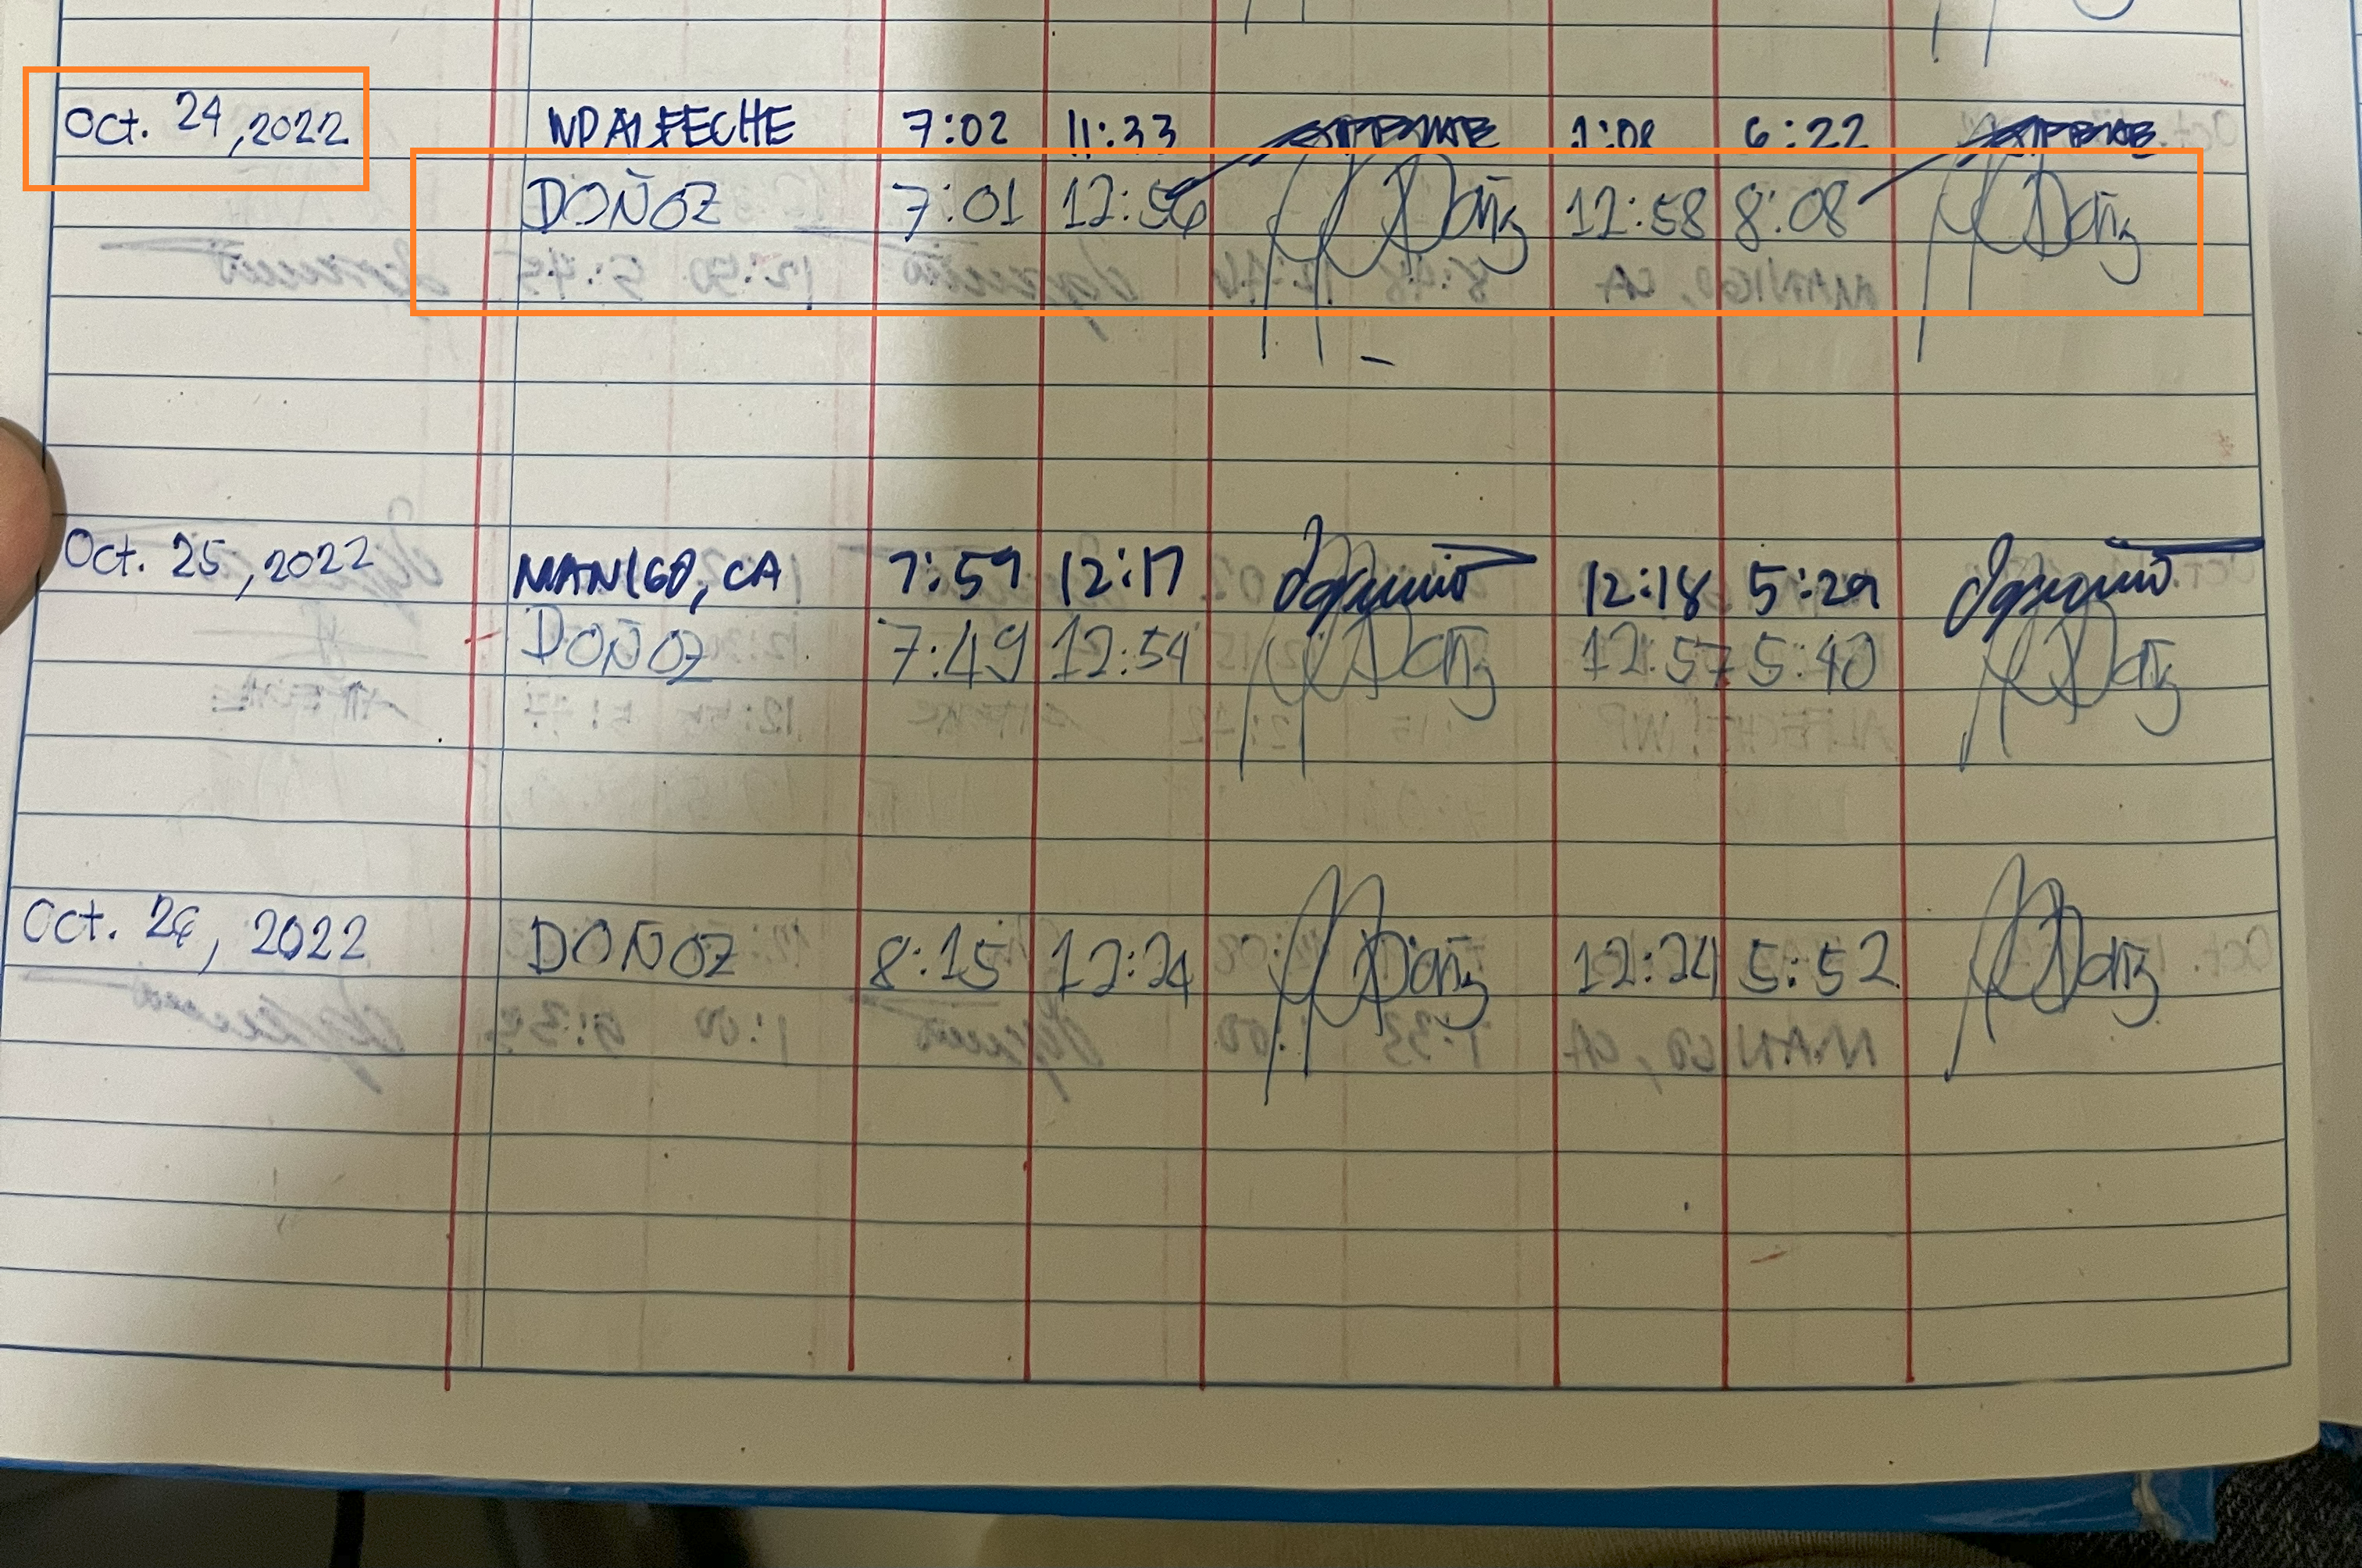 Oct. 24, 2022 NPALFECHE 7:02 11:33 1:08 6:22
DOÑOZ 7:01 12:56 Doñz 12:58 8:08 Doñz
Oct. 25, 2022 MANIGO, CA 7:59 12:17 12:18 5:29
DOÑOZ 7:49 12:54 Doñz 12:57 5:40 Doñz
Oct. 26, 2022 DOÑOZ 8:15 12:24 Doñz 12:24 5:52 Doñz